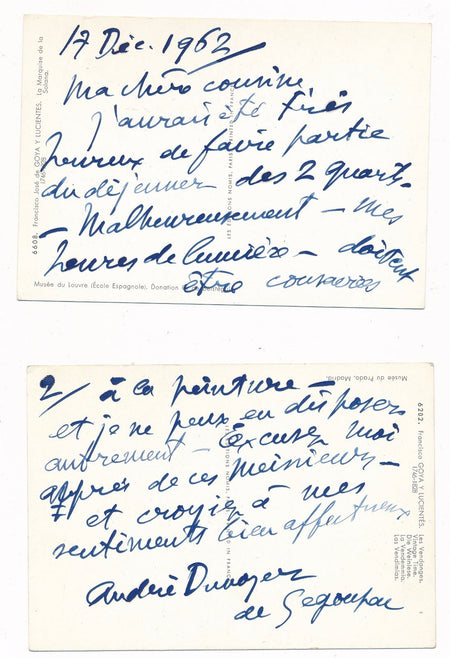 17 Déc. 1962/
Ma chère cousine
j'aurai été très
heureux de faire partie
du déjeuner des 2 quarts-
- Malheureusement - mes
heures de lumière - doivent
être consacrées
6608. Francisco José de GOYA Y LUCIENTES. La Marquise de la
Solana.
1746-1828
Musée du Louvre (École Espagnole), Donation
2/ à la peinture -
et je ne peux en disposer
autrement - Excusez moi
auprès de ces messieurs -
et croyez à mes
sentiments bien affectueux
André Dunoyer
de Segonzac
Musée du Prado, Madrid.
6202. Francisco GOYA Y LUCIENTES. Les Vendanges.
1746-1828
Vintage Time.
Die Weinlese.
La Vendemmia.
Las Vendimias.